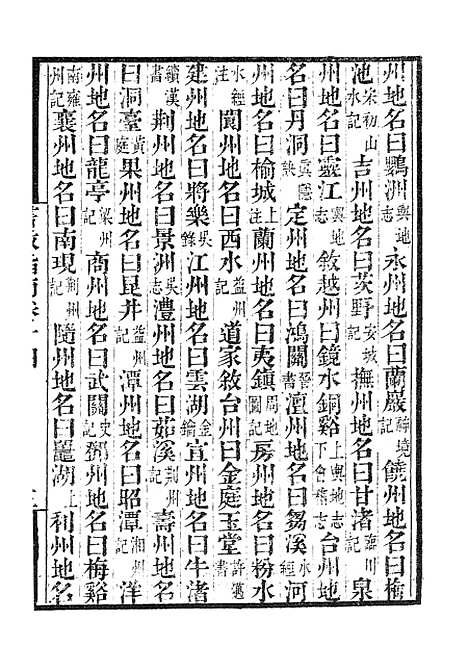 州地名曰鸚洲輿地志永州地名曰蘭巖醉境記饒州地名曰檐
池宋初山水記吉州地名曰茨野安城記撫州地名曰甘渚臨川記泉
州地名曰靈江輿地志敘越州曰鏡水銅谿上輿地志下會稽志台州地
名曰丹洞真隱訣定州地名曰鴻關晉書澶州地名曰芻溪水經河
州地名曰榆城上注蘭州地名曰夷鎮周地圖記房州地名曰粉水
水經注閬州地名曰西水益州記道家敘台州曰金庭玉堂許邁書
建州地名曰將樂吳錄江州地名曰雲湖金鑰宣州地名曰牛渚
續漢書荆州地名曰景洲吳志澧州地名曰茹溪荆州記壽州地名
曰洞臺黃庭果州地名曰昆井益州記潭州地名曰昭潭湘州記洋
州地名曰龍亭梁州記商州地名曰武關史鄧州地名曰梅谿
南雍州記襄州地名曰南現荆州記隨州地名曰龍湖上利州地名